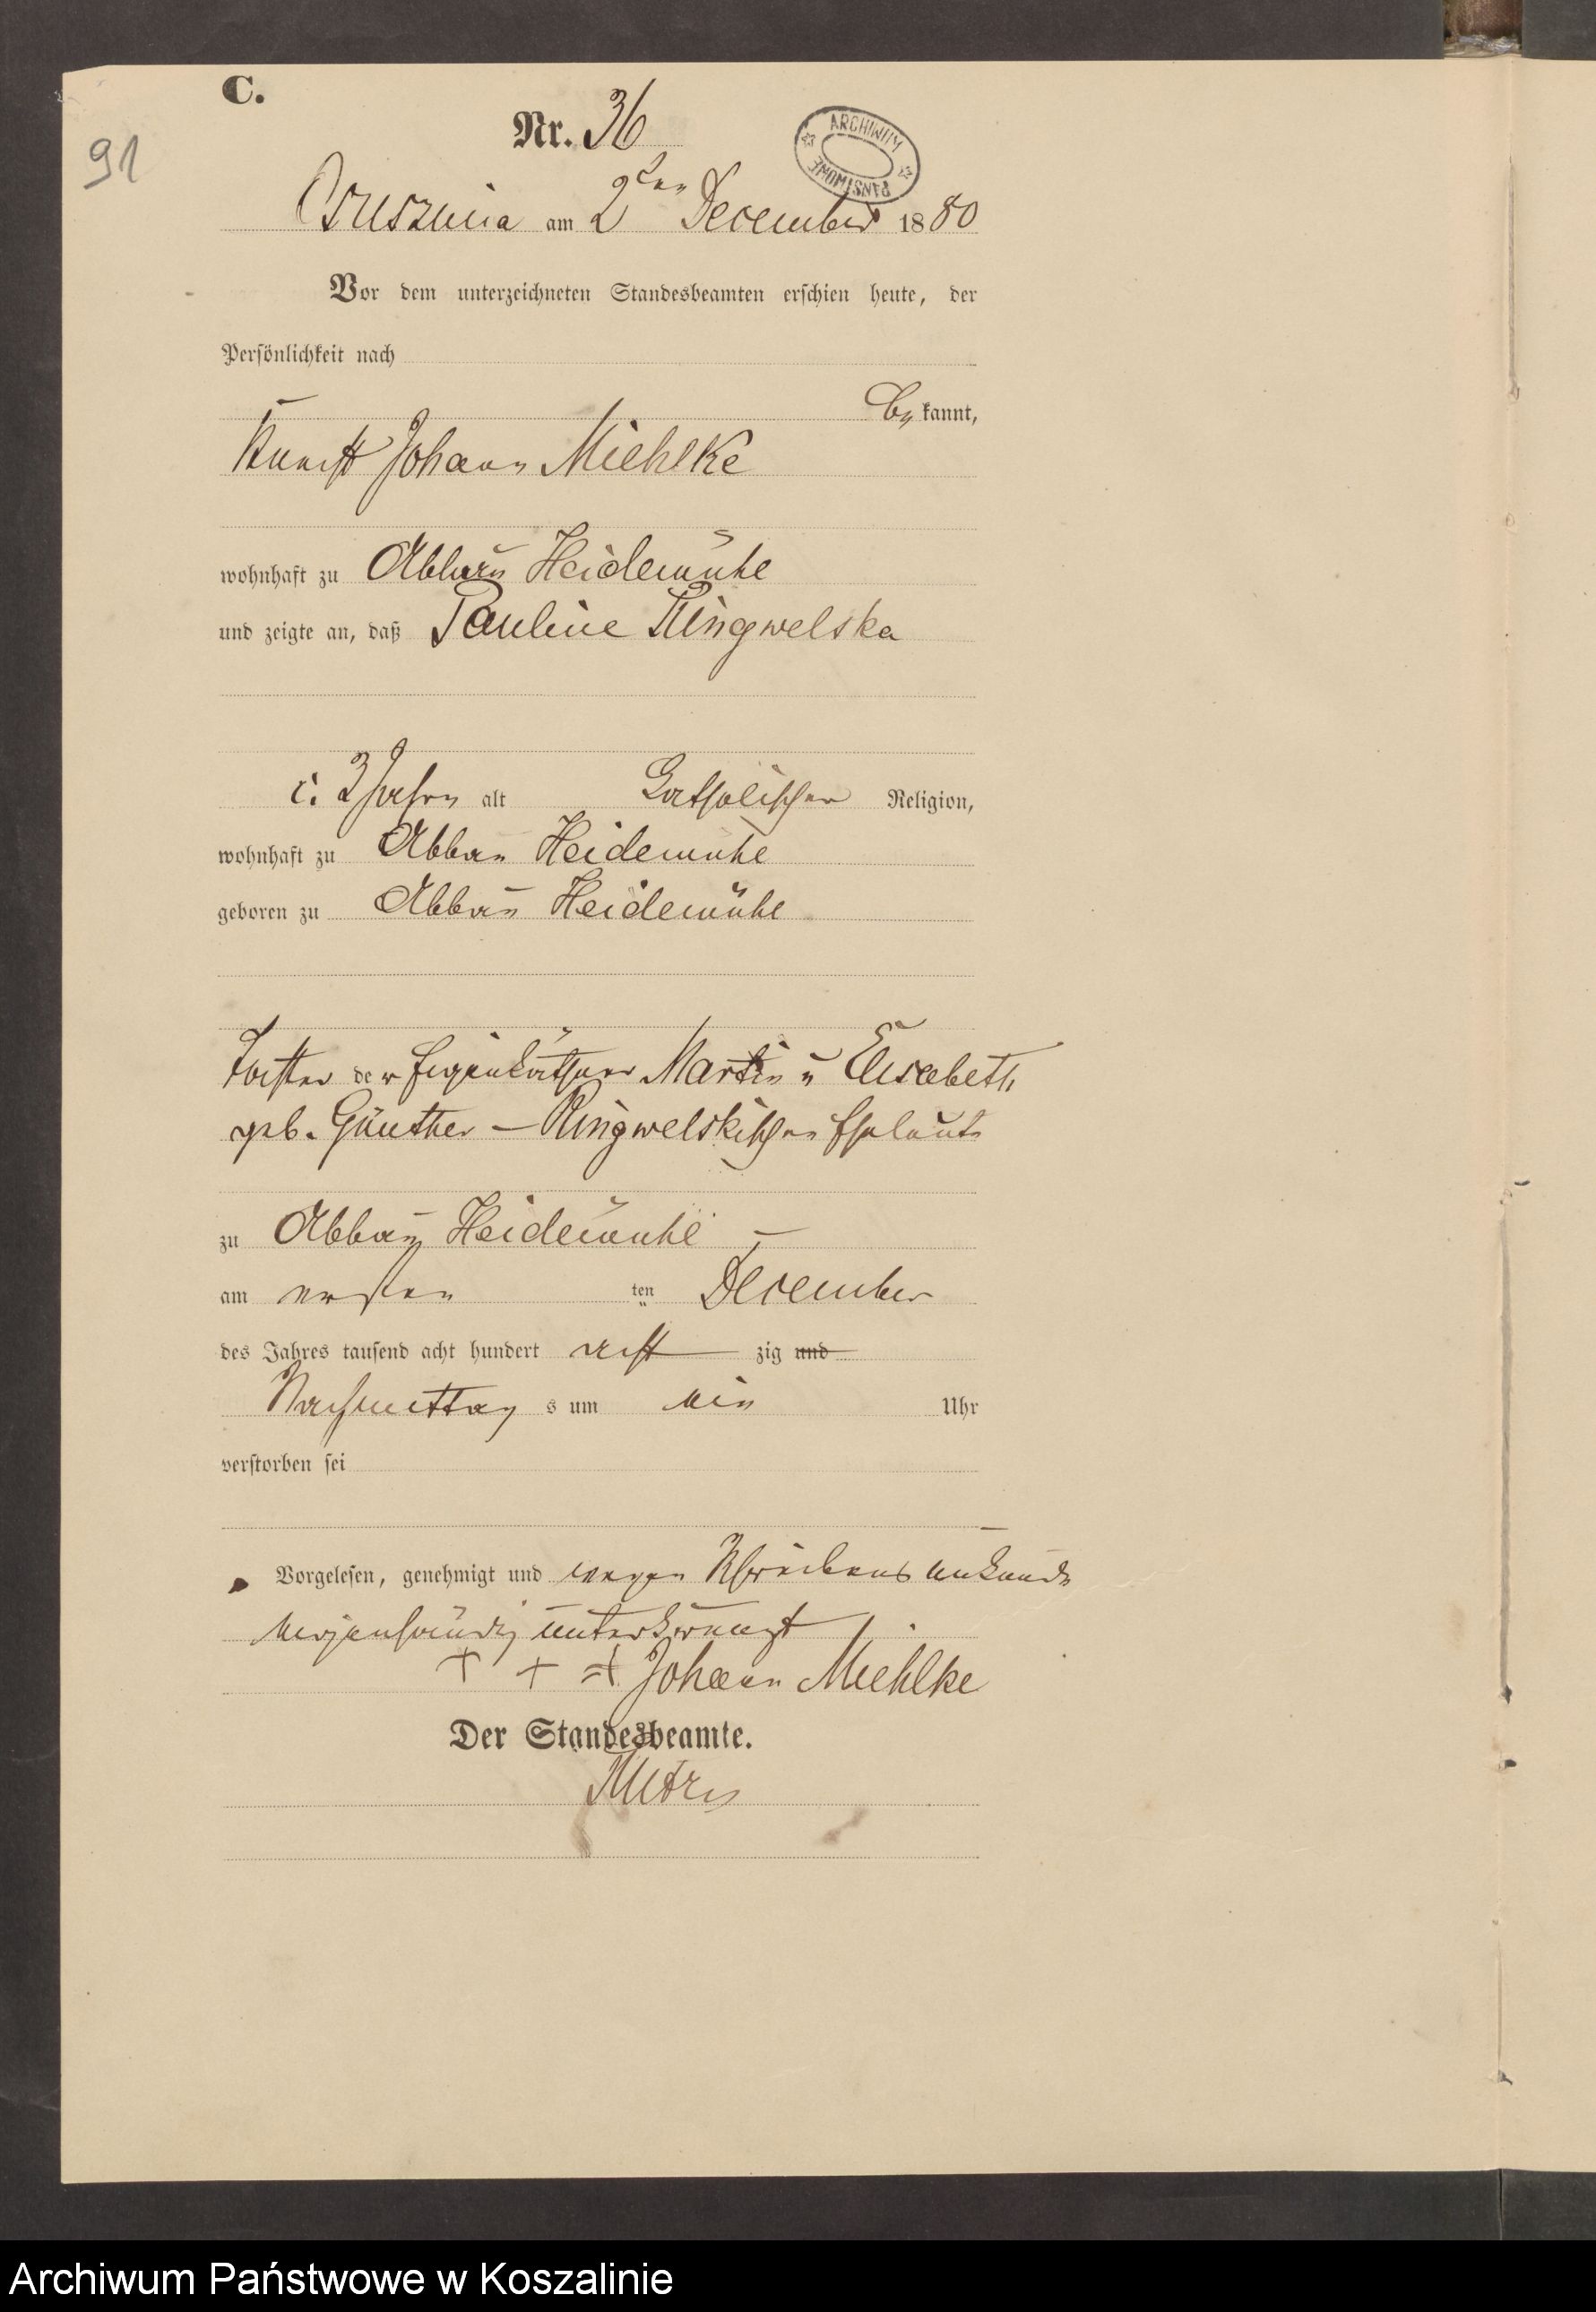 C.
91
Nr. 36
ARCHIWUM PAŃSTWOWE
am 2ten December 1880
Vor dem unterzeichneten Standesbeamten erschien heute, der
Persönlichkeit nach
bekannt,
Johann Miehlke
wohnhaft zu Abbau Heidemühl
und zeigte an, daß Pauline Ringwelska
c. 2 Jahre alt Katholischer Religion,
wohnhaft zu Abbau Heidemühl
geboren zu Abbau Heidemühl
Tochter der Eigenkäthner Martin u Elisabeth
geb. Günther – Ringwelskischen Eheleute
zu Abbau Heidemühl –
am ersten ten December
des Jahres tausend acht hundert acht zig und
Nachmittag s um ein Uhr
verstorben sei
Vorgelesen, genehmigt und wegen Schreibens unkunde
unterkreuzt
+ + + Johann Miehlke
Der Standesbeamte.
Archiwum Państwowe w Koszalinie